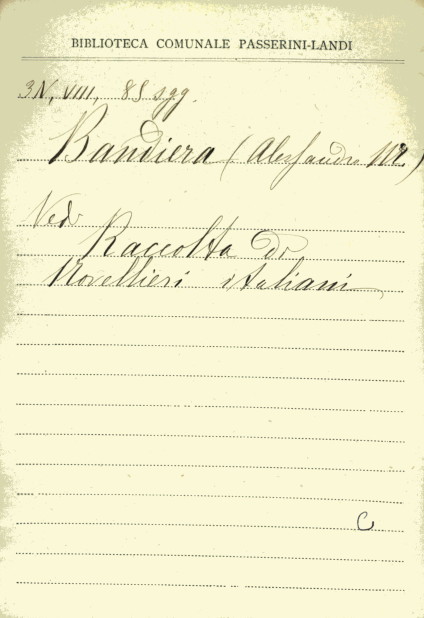 BIBLIOTECA COMUNALE PASSERINI-LANDI
3N, VIII, 85 sgg.
Bandiera (Alessandro M.)
Vedi
Raccolta di
Novellieri italiani
C